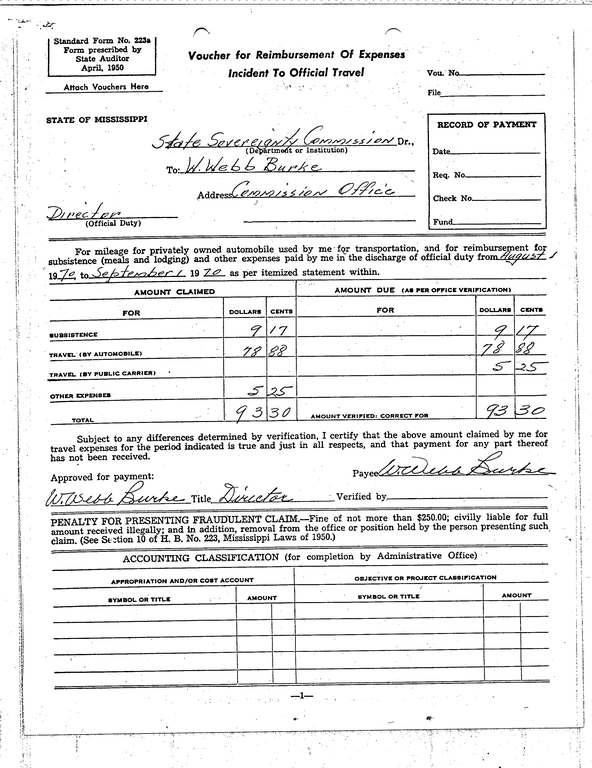 Standard Form No. 223a
Form prescribed by
State Auditor
April, 1950
Attach Vouchers Here
Voucher for Reimbursement Of Expenses
Incident To Official Travel
Vou. No.
File
STATE OF MISSISSIPPI
State Sovereignty Commission Dr.,
(Department or Institution)
To: W. Webb Burke
Address Commission Office
Director
(Official Duty)
RECORD OF PAYMENT
Date
Req. No.
Check No.
Fund
For mileage for privately owned automobile used by me for transportation, and for reimbursement for
subsistence (meals and lodging) and other expenses paid by me in the discharge of official duty from August 1
1970 to September 1 1970 as per itemized statement within.
AMOUNT CLAIMED AMOUNT DUE (AS PER OFFICE VERIFICATION)
FOR DOLLARS CENTS FOR DOLLARS CENTS
SUBSISTENCE 9 17 9 17
TRAVEL (BY AUTOMOBILE) 78 88 78 88
TRAVEL (BY PUBLIC CARRIER) 5 25
OTHER EXPENSES 5 25
TOTAL 93 30 AMOUNT VERIFIED: CORRECT FOR 93 30
Subject to any differences determined by verification, I certify that the above amount claimed by me for
travel expenses for the period indicated is true and just in all respects, and that payment for any part thereof
has not been received.
Approved for payment: Payee W. Webb Burke
W. Webb Burke Title Director Verified by
PENALTY FOR PRESENTING FRAUDULENT CLAIM.—Fine of not more than $250.00; civilly liable for full
amount received illegally; and in addition, removal from the office or position held by the person presenting such
claim. (See Section 10 of H. B. No. 223, Mississippi Laws of 1950.)
ACCOUNTING CLASSIFICATION (for completion by Administrative Office)
APPROPRIATION AND/OR COST ACCOUNT OBJECTIVE OR PROJECT CLASSIFICATION
SYMBOL OR TITLE AMOUNT SYMBOL OR TITLE AMOUNT
—1—